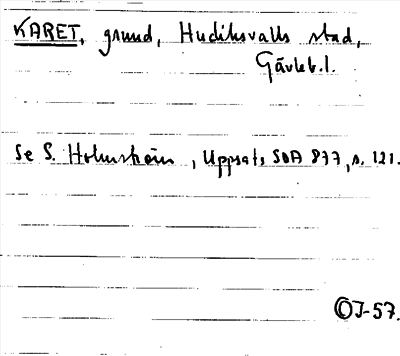 KARET, grund, Hudiksvalls stad,
Gävleb.l.
Se S. Holmström, Uppsats SOA 877, s. 121.
OJ-57.